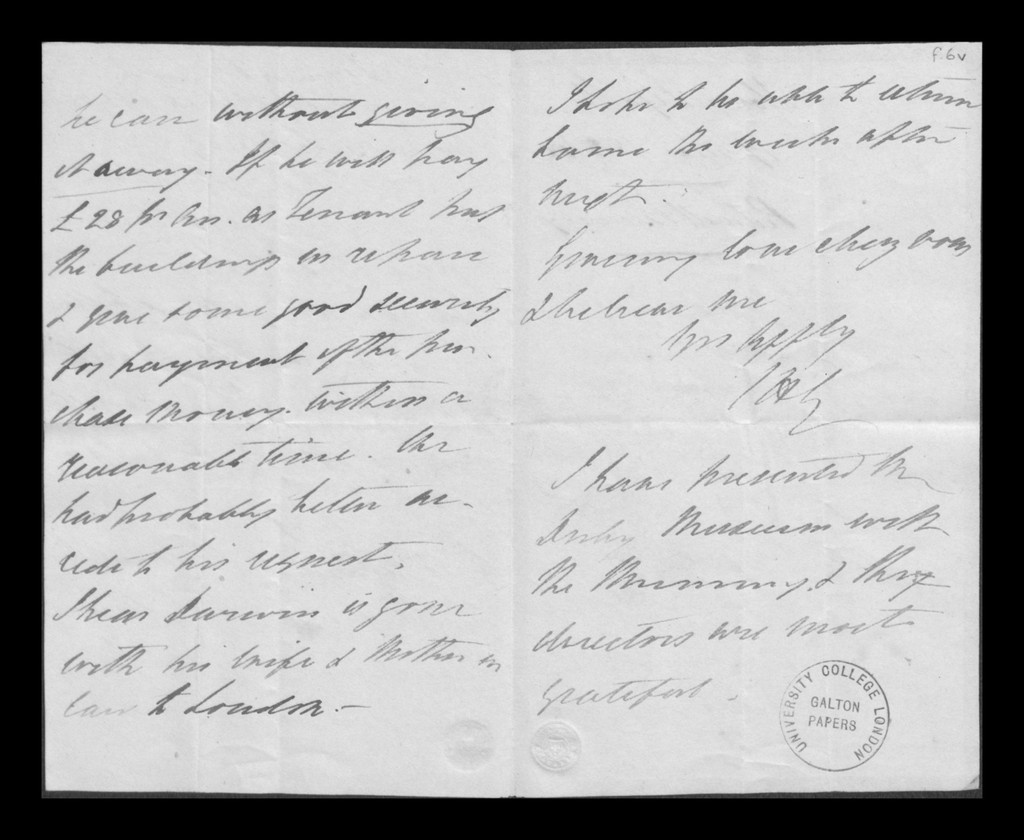 f. 6v
he can without giving
it away. If he will pay
£28 pr An. as Tenant put
the buildings in repair
& give some good security
for payment of the pur-
chase money within a
reasonable time. We
had probably better ac-
cede to his request.
I hear Darwin is gone
with his wife & Mother in
law to London.—
I hope to be able to return
home the week after
next.
love
& believe me
Yrs Affly
I have presented the
Derby Museum with
the Mummy, & the
directors are most
grateful.
UNIVERSITY COLLEGE LONDON
GALTON
PAPERS